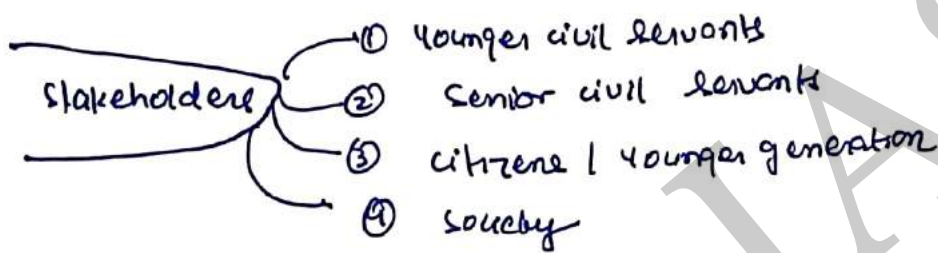 Stakeholders
① Younger civil servants
② Senior civil servants
③ citizens / younger generation
④ society
IAS